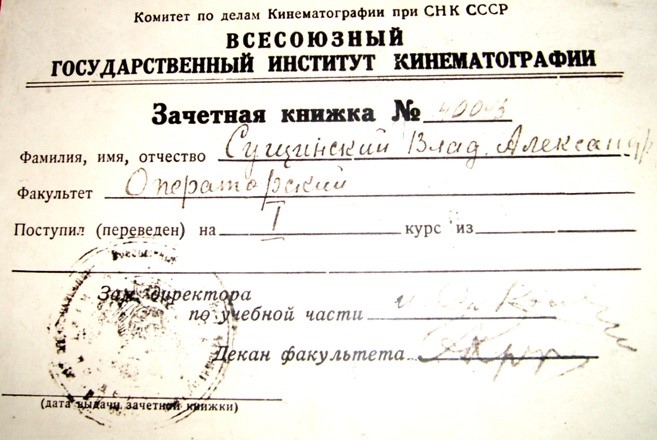 Комитет по делам Кинематографии при СНК СССР
ВСЕСОЮЗНЫЙ
ГОСУДАРСТВЕННЫЙ ИНСТИТУТ КИНЕМАТОГРАФИИ
Зачетная книжка №
Фамилия, имя, отчество Сущинский Влад. Александр
Факультет Операторский
Поступил (переведен) на I курс из
Зам. директора
по учебной части
Декан факультета
(дата выдачи зачетной книжки)